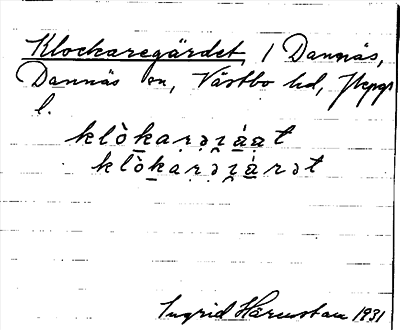 Klockaregärdet, 1 Dannäs,
Dannäs sn, Västbo hd, Jkpgs
l.
klò̱kaṛəɪá̱a̱t
klò̱kaṛəɪá̱rət
Ingrid Harenstam 1931